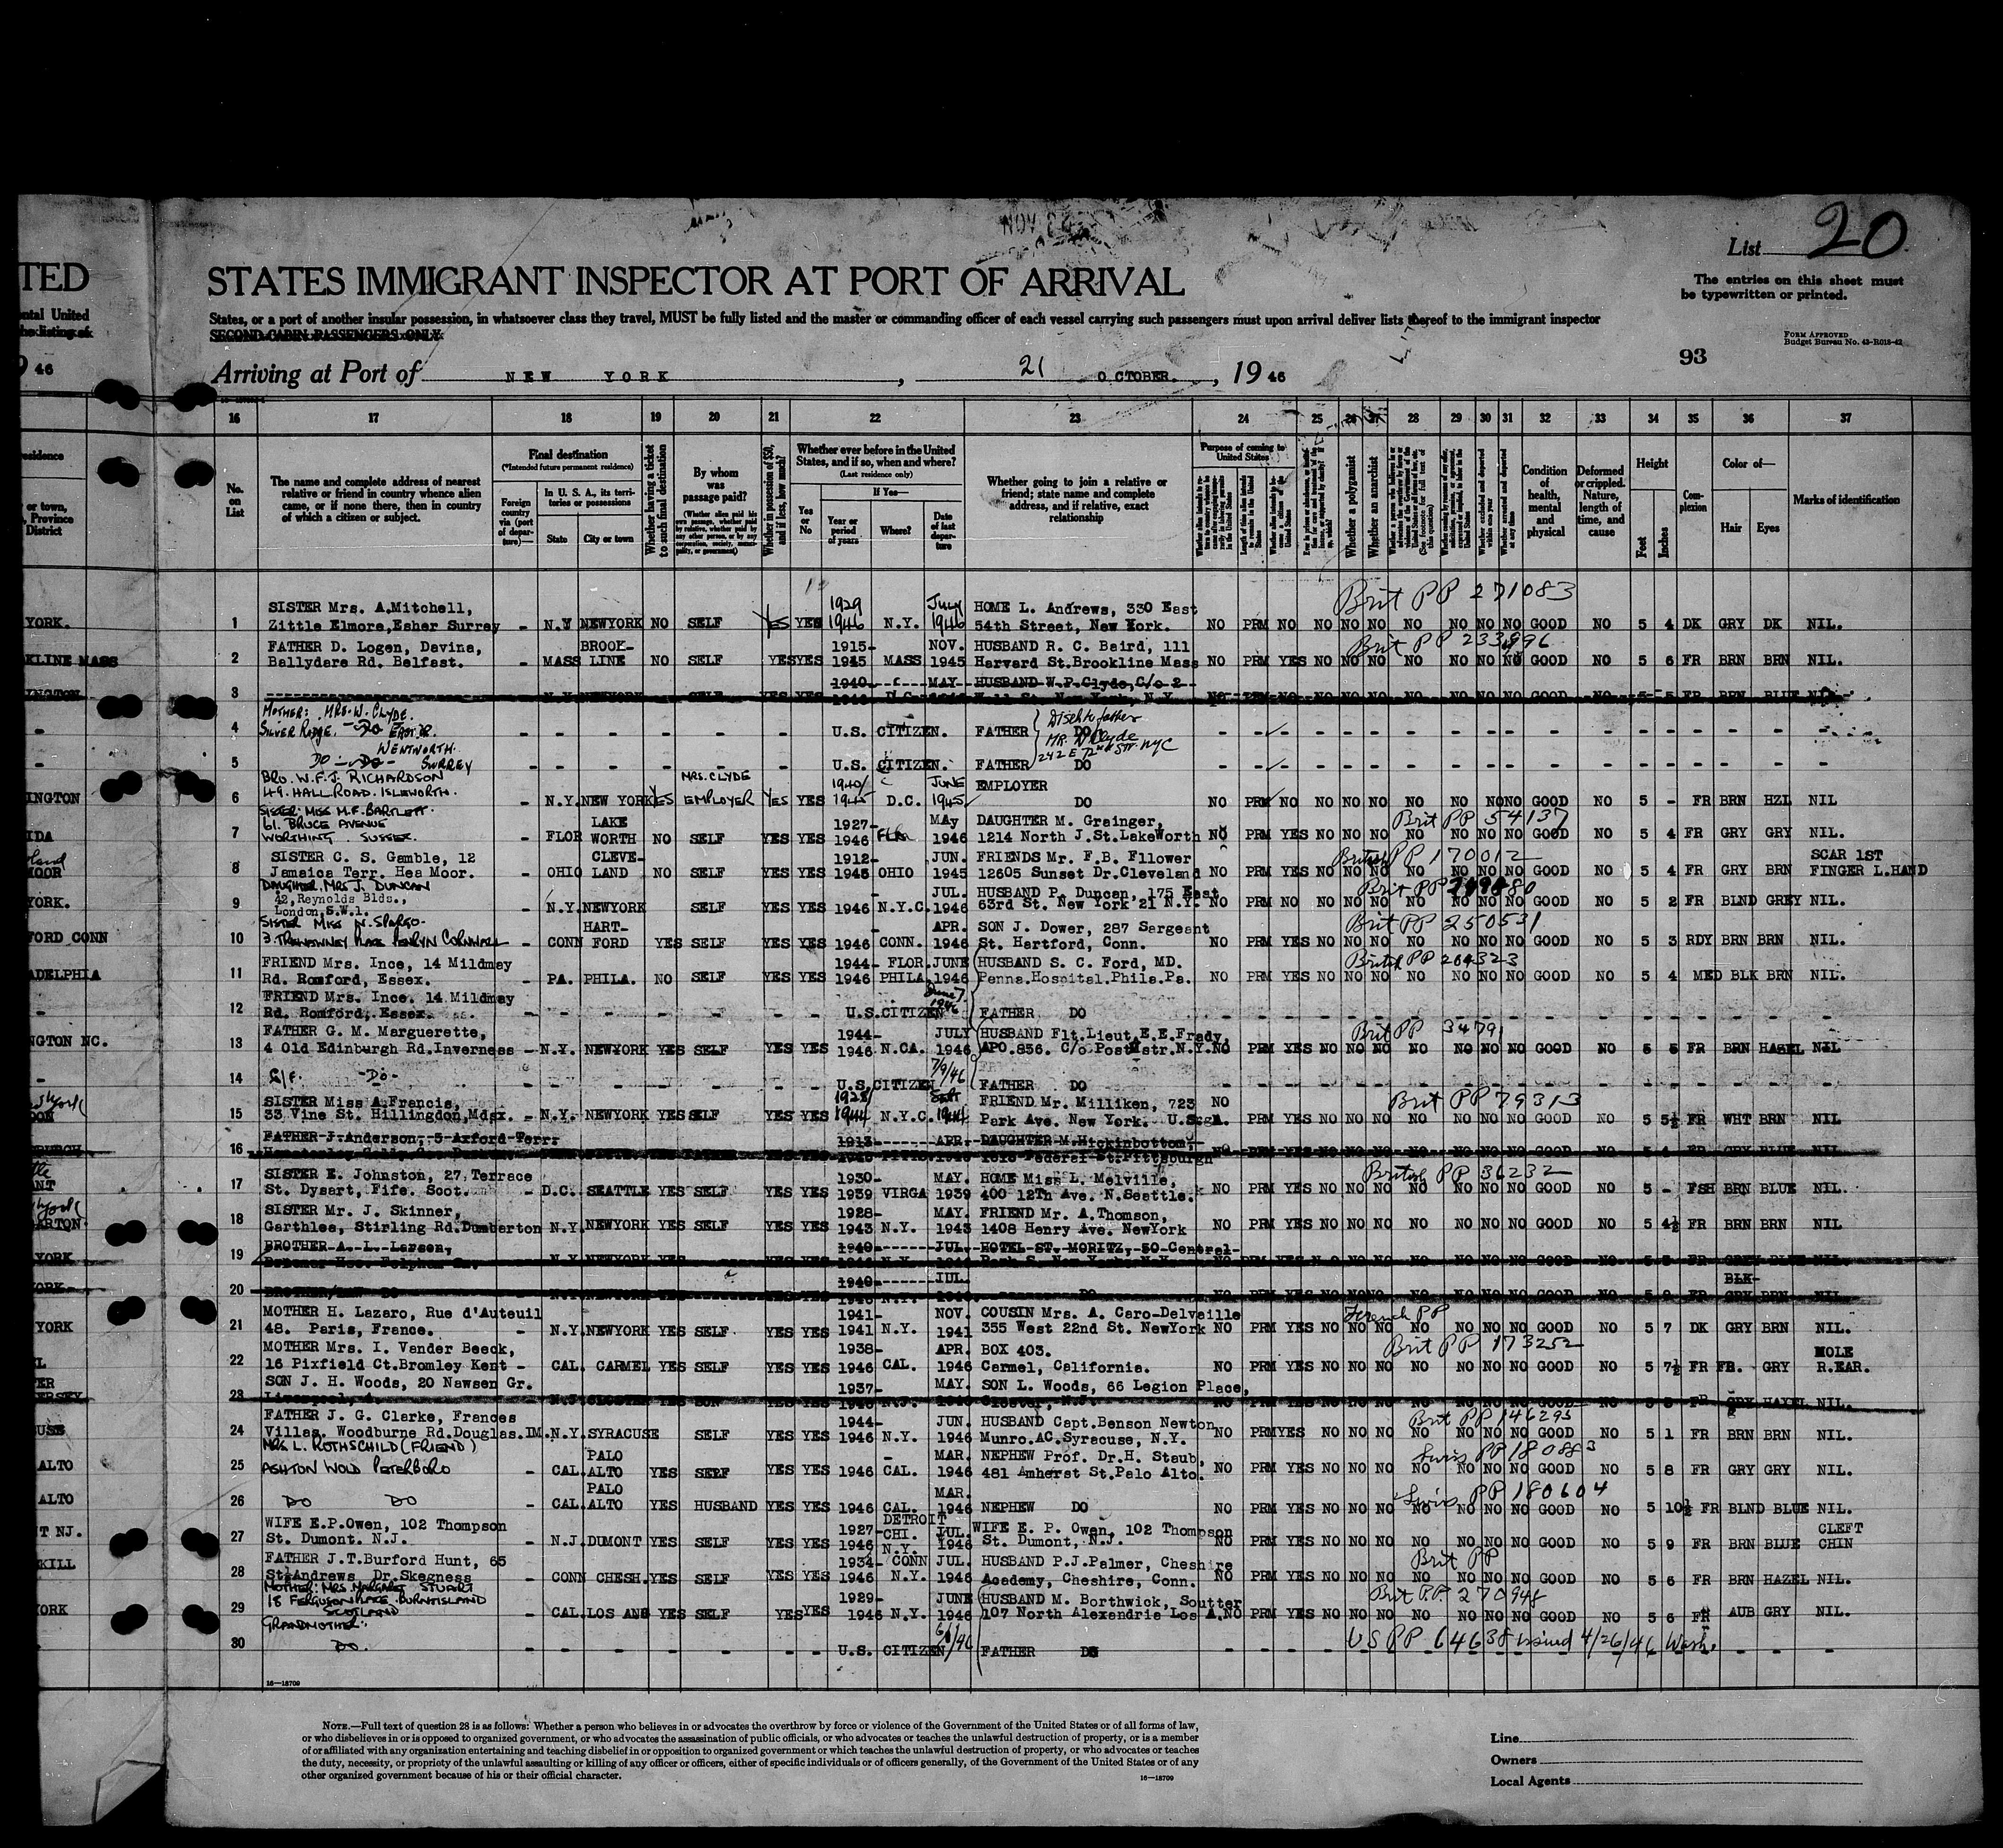 List 20
TED
STATES IMMIGRANT INSPECTOR AT PORT OF ARRIVAL
The entries on this sheet must
be typewritten or printed.
ntal United
States, or a port of another insular possession, in whatsoever class they travel, MUST be fully listed and the master or commanding officer of each vessel carrying such passengers must upon arrival deliver lists thereof to the immigrant inspector
SECOND-CABIN PASSENGERS ONLY
FORM APPROVED
Budget Bureau No. 43-R018-42
93
9 46
Arriving at Port of NEW YORK, 21 OCTOBER., 19 46
16 17 18 19 20 21 22 23 24 25 26 27 28 29 30 31 32 33 34 35 36 37
No. on List
The name and complete address of nearest
relative or friend in country whence alien
came, or if none there, then in country
of which a citizen or subject.
Final destination
(*Intended future permanent residence)
Foreign country via (port of departure)—
In U. S. A., its territories or possessions
State
City or town
Whether having a ticket to such final destination
By whom was passage paid?
Whether in possession of $50, and if less, how much?
Whether ever before in the United
States, and if so, when and where?
(Last residence only)
Yes or No
If Yes—
Year or period of years
Where?
Date of last departure
Whether going to join a relative or
friend; state name and complete
address, and if relative, exact
relationship
Purpose of coming to United States
Whether a polygamist
Whether an anarchist
Condition of health, mental and physical
Deformed or crippled. Nature, length of time, and cause
Height
Feet
Inches
Complexion
Color of—
Hair
Eyes
Marks of identification
Brit PP 271083
SISTER Mrs. A.Mitchell, 1929 July HOME L. Andrews, 330 East
YORK. 1 Zittle Elmore,Esher Surrey - N.Y NEWYORK NO SELF YES YES 1946 N.Y. 1946 54th Street, New York. NO PRM NO NO NO NO NO NO NO NO GOOD NO 5 4 DK GRY DK NIL.
FATHER D. Logen, Davina, BROOK- 1915- NOV. HUSBAND R. C. Baird, 111 Brit PP 233996
KLINE MASS 2 Ballydare Rd. Belfast. - MASS LINE NO SELF YES YES 1945 MASS 1945 Harvard St.Brookline Mass NO PRM YES NO NO NO NO NO NO NO GOOD NO 5 6 FR BRN BRN NIL.
1940- MAY HUSBAND W.P.Clyde,C/o 2
3 N.Y. NEWYORK SELF YES YES D.C. Wall St. New York, N.Y. NO PRM NO NO NO NO NO NO NO NO GOOD NO 5 5 FR BRN BLUE NIL
MOTHER: MRS. W. CLYDE.
4 SILVER RIDGE. - - - - - - - U.S. CITIZEN. FATHER DO
WENTWORTH. Mr. W Clyde
242 E 72nd STR. NYC
5 DO - DO - SURREY - - - - - - - U.S. CITIZEN. FATHER DO
BRO. W.F.J. RICHARDSON MRS. CLYDE 1940/ JUNE EMPLOYER
INGTON 6 49. HALL ROAD. ISLEWORTH. - N.Y. NEW YORK YES EMPLOYER YES YES 1945 D.C. 1945 DO NO PRM NO NO NO NO NO NO NO NO GOOD NO 5 - FR BRN HZL NIL
SISTER: MISS M.F. BARTLETT.
61. BRUCE AVENUE LAKE 1927- May DAUGHTER M. Grainger, Brit PP 54137
IDA 7 WORTHING SUSSEX. - FLOR WORTH NO SELF YES YES 1946 Fla 1946 1214 North J.St.LakeWorth NO PRM YES NO NO NO NO NO NO NO GOOD NO 5 4 FR GRY GRY NIL.
SISTER C. S. Gamble, 12 CLEVE- 1912- JUN. FRIENDS Mr. F.B. Fllower British PP 170012 SCAR 1ST
MOOR 8 Jamaica Terr. Hea Moor. - OHIO LAND NO SELF YES YES 1945 OHIO 1945 12605 Sunset Dr.Cleveland NO PRM YES NO NO NO NO NO NO NO GOOD NO 5 4 FR GRY BRN FINGER L.HAND
DAUGHTER. MRS J. DUNCAN
42,Reynolds Blds., - JUL. HUSBAND P. Duncan, 175 East Brit PP
YORK. 9 London,S.W.1. - N.Y. NEWYORK SELF YES YES 1946 N.Y.C. 1946 63rd St. New York 21 N.Y. NO PRM NO NO NO NO NO NO NO NO GOOD NO 5 2 FR BLND GREY NIL.
SISTER MISS N. SPARGO. HART- - APR. SON J. Dower, 287 Sargeant Brit PP 250531
FORD CONN 10 3. TREWINNEY PLACE PENRYN CORNWALL - CONN FORD YES SELF YES YES 1946 CONN. 1946 St. Hartford, Conn. NO PRM YES NO NO NO NO NO NO NO GOOD NO 5 3 RDY BRN BRN NIL.
FRIEND Mrs. Ince, 14 Mildmay 1944- FLOR. JUNE HUSBAND S. C. Ford, MD. British PP 264323
ADELPHIA 11 Rd. Romford, Essex. - PA. PHILA. NO SELF YES YES 1946 PHILA. 1946 Penna.Hospital.Phila.Pa. NO PRM YES NO NO NO NO NO NO NO GOOD NO 5 4 MED BLK BRN NIL.
FRIEND Mrs. Ince. 14 Mildmay June 7 1946
12 Rd. Romford, Essex. - - - - - - - U.S.CITIZEN FATHER DO
FATHER G. M. Marguerette, 1944- JULY HUSBAND Flt.Lieut.E.E.Frady, Brit PP 34791
NGTON NC. 13 4 Old Edinburgh Rd.Inverness - N.Y. NEWYORK YES SELF YES YES 1946 N.CA. 1946 APO.856. C/o Postmstr.N.Y. NO PRM YES NO NO NO NO NO NO NO GOOD NO 5 5 FR BRN HASEL NIL
14 G/F. -DO- - - - - - - - U.S.CITIZEN 7/9/46 FATHER DO
SISTER Miss A.Francis, 1928/ Sept FRIEND Mr. Milliken, 723 NO Brit PP 79313
15 33 Vine St. Hillingdon,Mdsx. - N.Y. NEWYORK YES SELF YES YES 1944 N.Y.C. 1944 Park Ave. New York. U.S.A. PRM YES NO NO NO NO NO NO NO GOOD NO 5 5½ FR WHT BRN NIL
FATHER J. Anderson, 5 Axford Terr. 1913- APR. DAUGHTER M.Hickinbottom,
16 1616 Federal St.Pittsburgh NO PRM YES NO NO NO NO NO NO NO GOOD NO 5 4 FR GRY BLUE NIL
SISTER E. Johnston, 27,Terrace 1930- MAY. HOME Miss L. Melville, British PP 36232
17 St. Dysart, Fife. Scot. - D.C. SEATTLE YES SELF YES YES 1939 VIRGA 1939 400 12Th Ave. N.Seattle. NO PRM YES NO NO NO NO NO NO NO GOOD NO 5 - FSH BRN BLUE NIL.
SISTER Mr. J. Skinner, 1928- MAY. FRIEND Mr. A.Thomson,
18 Garthlea, Stirling Rd.Dumberton N.Y. NEWYORK YES SELF YES YES 1943 N.Y. 1943 1408 Henry Ave. NewYork NO PRM YES NO NO NO NO NO NO NO GOOD NO 5 4½ FR BRN BRN NIL
BROTHER A. L. Larsen, 1940- JUL. HOTEL ST. MORITZ, 50 Central
YORK 19 N.Y. NEWYORK YES SELF YES YES Park S. New York, N.Y. NO PRM YES NO NO NO NO NO NO NO GOOD NO 5 5 FR GREY BLUE NIL.
1940- JUL. BLK-
YORK. 20 BROTHER/LAW DO N.Y. DO NO GOOD NO 5 9 FR GRY BRN NIL
MOTHER H. Lazaro, Rue d'Auteuil 1941- NOV. COUSIN Mrs. A. Caro-Delvaille French PP
YORK 21 48. Paris, France. - N.Y. NEWYORK YES SELF YES YES 1941 N.Y. 1941 355 West 22nd St. NewYork NO PRM YES NO NO NO NO NO NO NO GOOD NO 5 7 DK GRY BRN NIL.
MOTHER Mrs. I. Vander Beeck, 1938- APR. BOX 403. Brit PP 173252 MOLE
22 16 Pixfield Ct.Bromley Kent - CAL. CARMEL YES SELF YES YES 1946 CAL. 1946 Carmel, California. NO PRM YES NO NO NO NO NO NO NO GOOD NO 5 7½ FR FR. GRY R.EAR.
SON J. H. Woods, 20 Nawsen Gr. 1937- MAY. SON L. Woods, 66 Legion Place,
ERSEY 23 Liverpool, 4. N.J. CLOSTER YES SON YES YES 1946 N.J. 1946 Closter, N.J. NO PRM YES NO NO NO NO NO NO NO GOOD NO 5 5 FR GRY HAZEL NIL.
FATHER J. G. Clarke, Frances 1944- JUN. HUSBAND Capt.Benson Newton Brit PP 146295
USE 24 Villas. Woodburne Rd.Douglas.IM. N.Y. SYRACUSE SELF YES YES 1946 N.Y. 1946 Munro.AC.Syracuse, N.Y. NO PRM YES NO NO NO NO NO NO NO GOOD NO 5 1 FR BRN BRN NIL.
MRS. L. ROTHSCHILD (FRIEND) PALO - MAR. NEPHEW Prof. Dr.H. Staub, Swiss PP 180883
ALTO 25 ASHTON WOLD PETERBORO - CAL. ALTO YES SELF YES YES 1946 CAL. 1946 481 Amherst St.Palo Alto. NO PRM YES NO NO NO NO NO NO NO GOOD NO 5 8 FR GRY GRY NIL.
PALO MAR. Swiss PP 180604
ALTO 26 DO DO - CAL. ALTO YES HUSBAND YES YES 1946 CAL. 1946 NEPHEW DO NO PRM YES NO NO NO NO NO NO NO GOOD NO 5 10½ FR BLND BLUE NIL.
WIFE E.P.Owen, 102 Thompson 1927- DETROIT CHI. JUL. WIFE E. P. Owen, 102 Thompson CLEFT
T NJ. 27 St. Dumont. N.J. - N.J. DUMONT YES SELF YES YES 1946 N.Y. 1946 St. Dumont, N.J. NO PRM YES NO NO NO NO NO NO NO GOOD NO 5 9 FR BRN BLUE CHIN
FATHER J.T.Burford Hunt, 65 1934- CONN JUL. HUSBAND P.J.Palmer, Cheshire Brit PP
KILL 28 St.Andrews Dr.Skegness - CONN CHESH. YES SELF YES YES 1946 N.Y. 1946 Academy, Cheshire, Conn. NO PRM YES NO NO NO NO NO NO NO GOOD NO 5 6 FR BRN HAZEL NIL.
MOTHER: MRS. MARGARET STUART
18 FERGUSON PLACE. BURNTISLAND 1929- JUNE HUSBAND M. Borthwick, Soutter Brit P.P. 270948
YORK 29 SCOTLAND - CAL. LOS ANG YES SELF YES YES 1946 N.Y. 1946 107 North Alexandria Los A. NO PRM YES NO NO NO NO NO NO NO GOOD NO 5 6 FR AUB GRY NIL.
GRANDMOTHER. US PP 64638 issued 4/26/46 Wash.
30 DO. - - - - - - U.S. CITIZEN FATHER DO
16—18709
NOTE.—Full text of question 28 is as follows: Whether a person who believes in or advocates the overthrow by force or violence of the Government of the United States or of all forms of law,
or who disbelieves in or is opposed to organized government, or who advocates the assassination of public officials, or who advocates or teaches the unlawful destruction of property, or is a member
of or affiliated with any organization entertaining and teaching disbelief in or opposition to organized government or which teaches the unlawful destruction of property, or who advocates or teaches
the duty, necessity, or propriety of the unlawful assaulting or killing of any officer or officers, either of specific individuals or of officers generally, of the Government of the United States or of any
other organized government because of his or their official character.
16—18709
Line
Owners
Local Agents